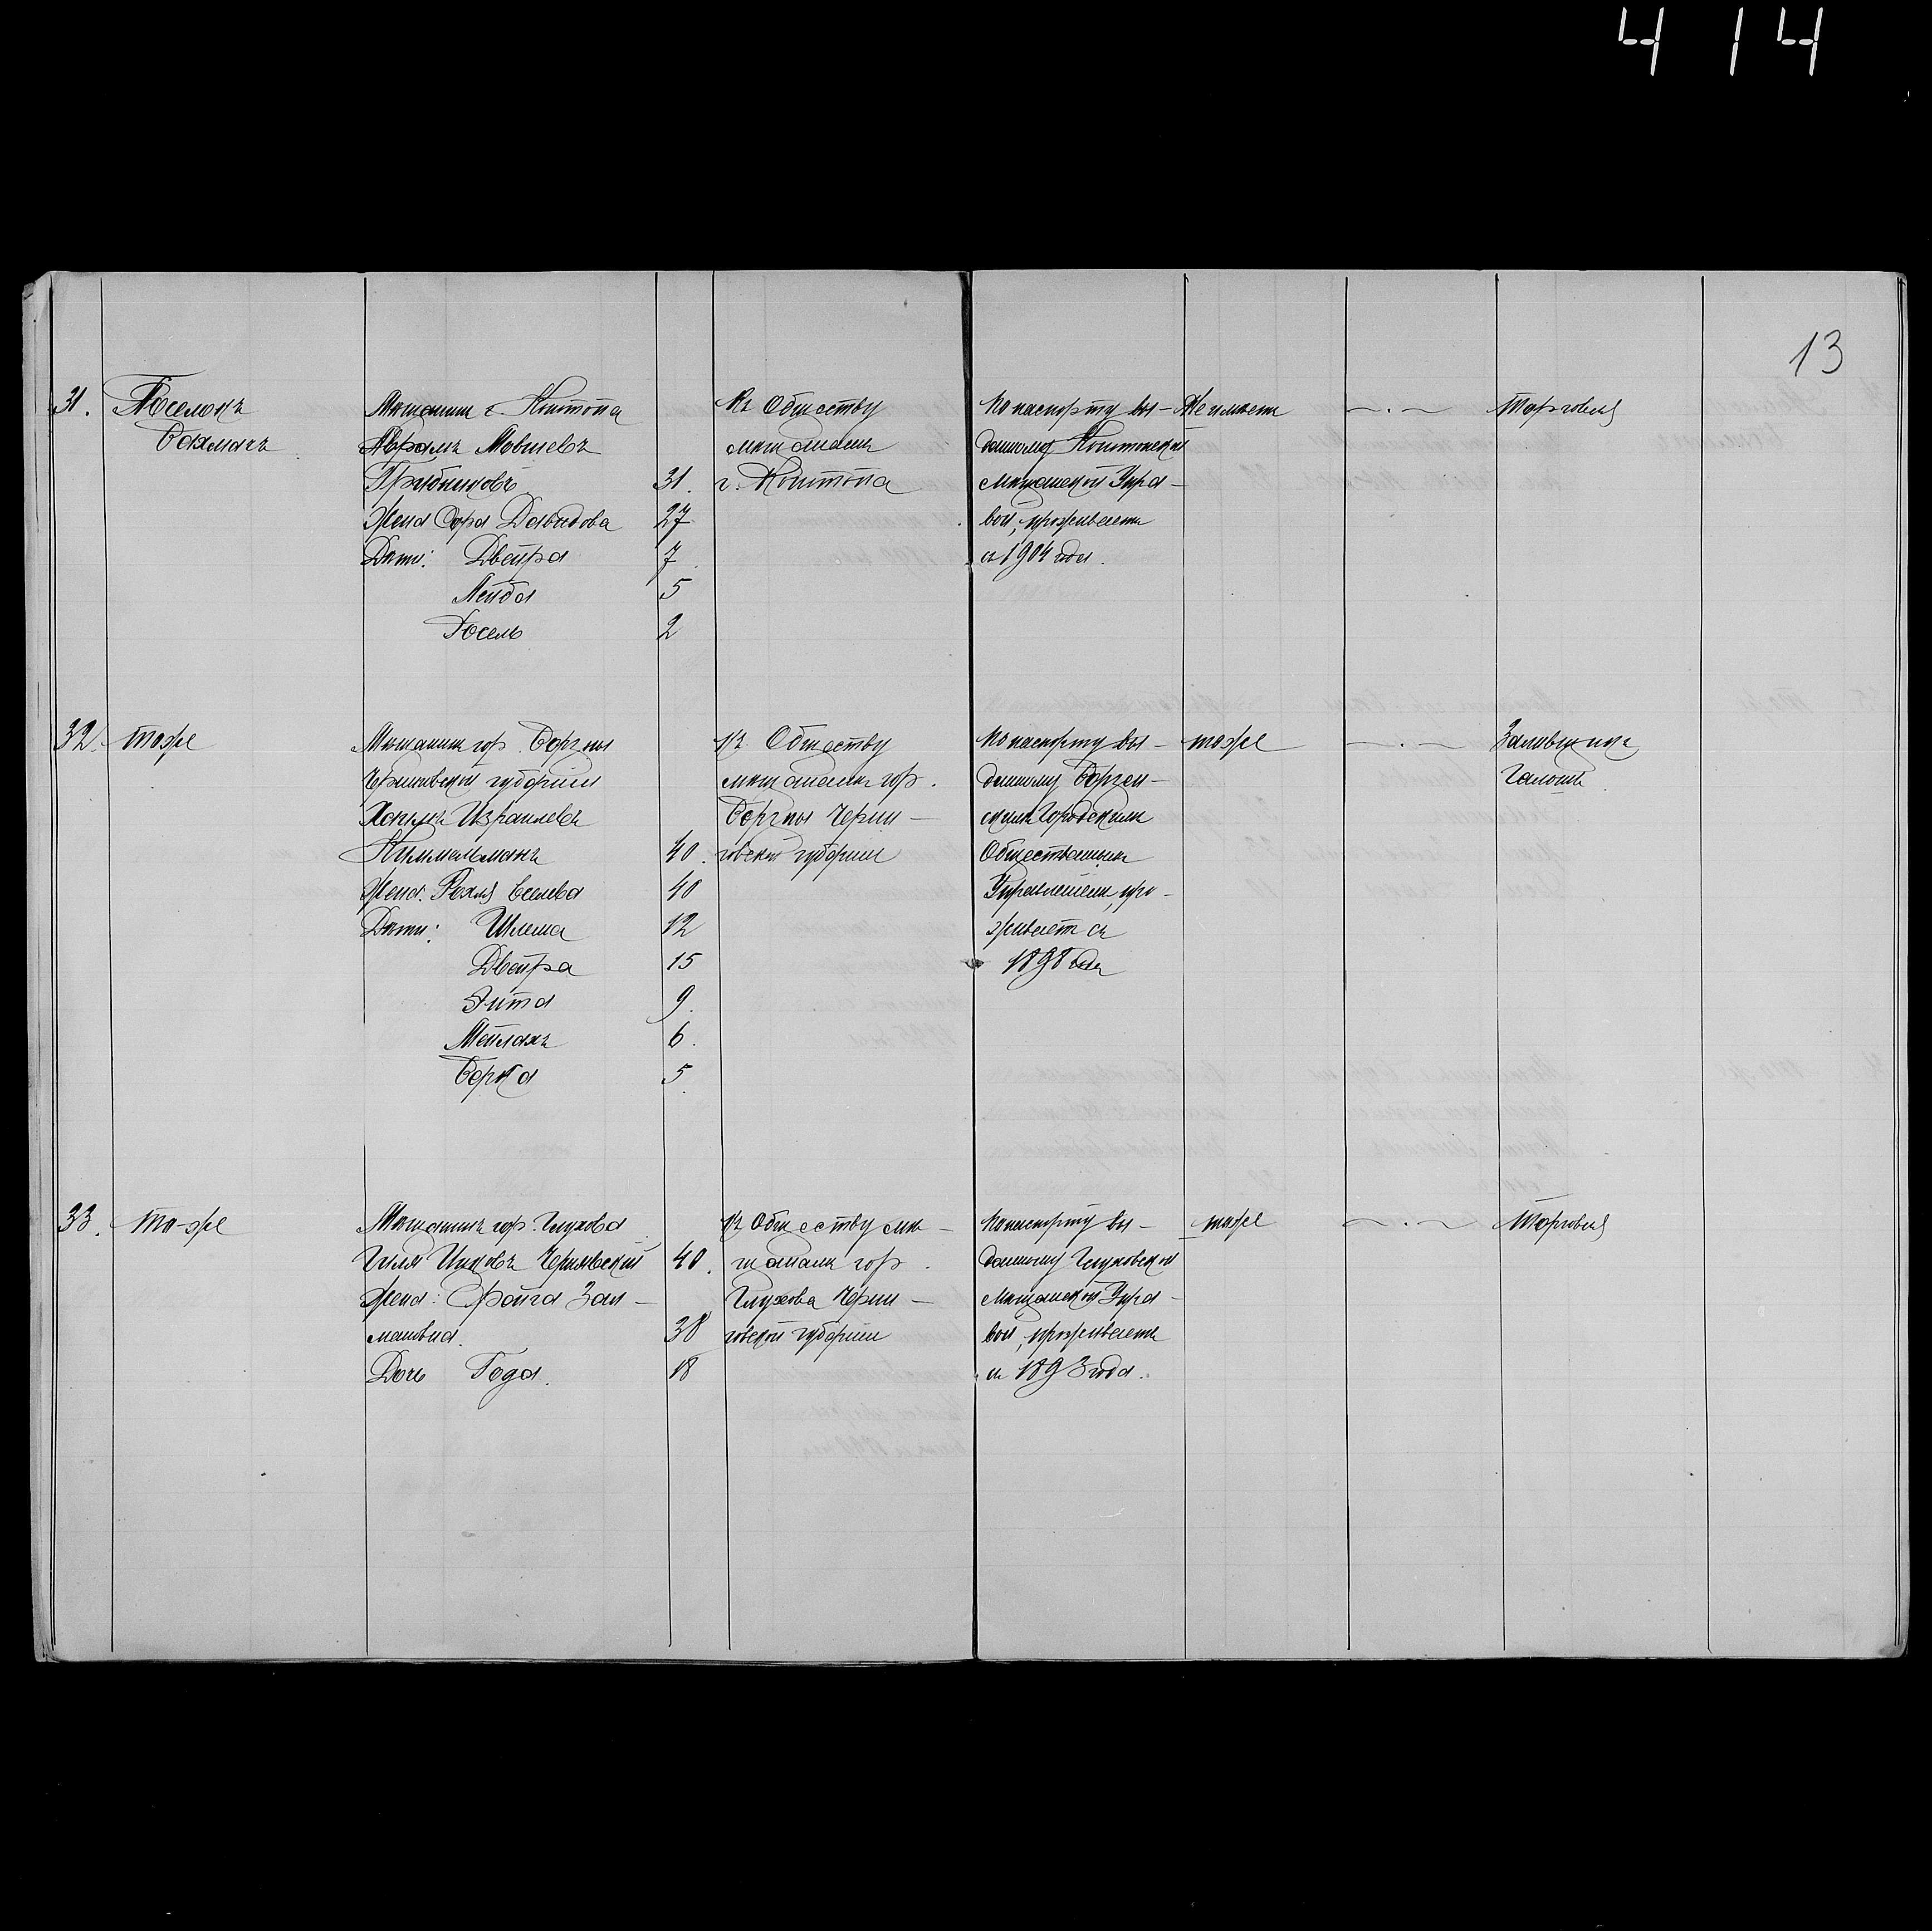 4 14
13
31. Поселокъ
Бахмачъ
Мѣщанинъ г. Конотопа
Абрамъ Мовшевъ
Грибниковъ 31.
Жена Сора Давидова 27
Дѣти: Двейра 7
Лейба 5
Іосель 2
Къ Обществу
мѣщанъ
г. Конотопа
По паспорту вы-
данному Конотопской
мѣщанской Упра-
вой, проживаетъ
съ 1904 года.
Не имѣетъ
— . —
Торговля
32. тоже
Мѣщанинъ гор. Борзны
Черниговской губерніи
Израилевъ
Киммельманъ 40.
Жена: Рохля Еселева 40
Дѣти: Шлема 12
Двейра 15
Эита 9.
Мейлахъ 6.
Берка 5.
Къ Обществу
мѣщанъ гор.
Борзны Черни-
говской губерніи
По паспорту вы-
данному Борзен-
скимъ Городскимъ
Общественнымъ
Управленіемъ, про-
живаетъ съ
1898 года
тоже
— . —
Заливщикъ
Галошъ.
33. То-же
Мѣщанинъ гор. Глухова
Ицковъ Чернявскій 40.
Жена: Фрейга Зал-
мановна. 38
Дочь Года. 18
Къ Обществу мѣ-
щанъ гор.
Глухова Черни-
говской губерніи
По паспорту вы-
данному Глуховской
Мѣщанской Упра-
вой, проживаетъ
съ 1893 года.
тоже
— . —
Торговля